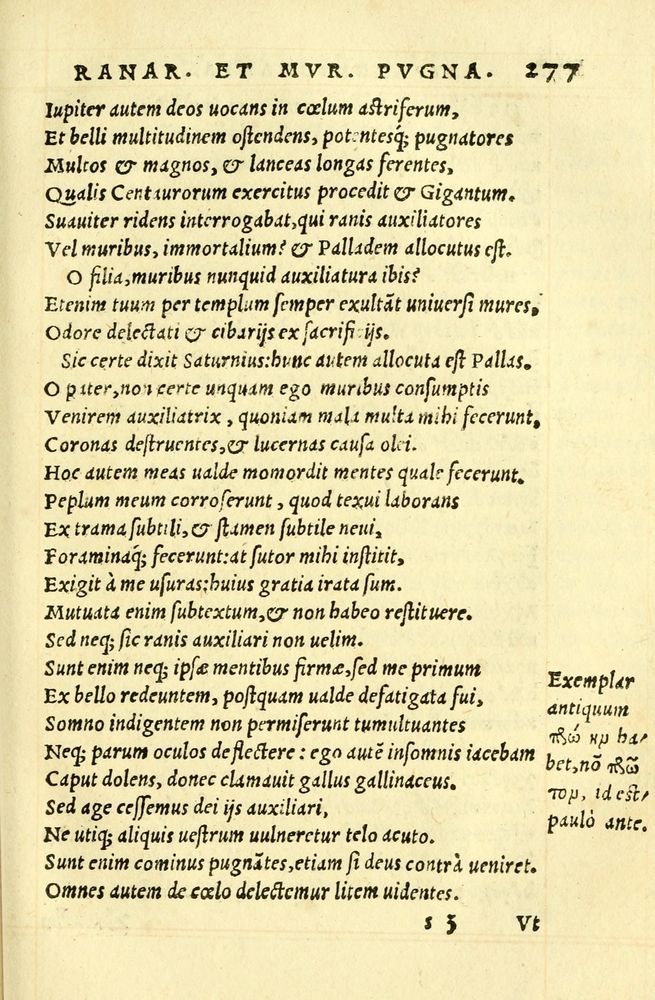 RANAR. ET MVR. PVGNA. 277
Iupiter autem deos uocans in cœlum astriferum,
Et belli multitudinem ostendens, potentesq; pugnatores
Multos & magnos, & lanceas longas ferentes,
Qualis Centaurorum exercitus procedit & Gigantum.
Suauiter ridens interrogabat, qui ranis auxiliatores
Vel muribus, immortalium? & Palladem allocutus est.
O filia, muribus nunquid auxiliatura ibis?
Etenim tuum per templum semper exultãt uniuersi mures,
Odore delectati & cibarijs ex sacrificijs.
Sic certe dixit Saturnius: hunc autem allocuta est Pallas.
O pater, non certe unquam ego muribus consumptis
Venirem auxiliatrix, quoniam mala multa mihi fecerunt,
Coronas destruentes, & lucernas causa olei.
Hoc autem meas ualde momordit mentes quale fecerunt.
Peplum meum corroserunt, quod texui laborans
Ex trama subtili, & stamen subtile neui,
Foraminaq; fecerunt: at sutor mihi institit,
Exigit à me usuras: huius gratia irata sum.
Mutuata enim subtextum, & non habeo restituere.
Sed neq; sic ranis auxiliari non uelim.
Sunt enim neq; ipsæ mentibus firmæ, sed me primum
Ex bello redeuntem, postquam ualde defatigata fui,
Somno indigentem non permiserunt tumultuantes
Neq; parum oculos deflectere: ego autẽ insomnis iacebam
Caput dolens, donec clamauit gallus gallinaceus.
Sed age cessemus dei ijs auxiliari,
Ne utiq; aliquis uestrum uulneretur telo acuto.
Sunt enim cominus pugnãtes, etiam si deus contrà ueniret.
Omnes autem de cœlo delectemur litem uidentes.
s 3 Vt
Exemplar
antiquum
ha/
bet, nõ
id est/
paulò ante.